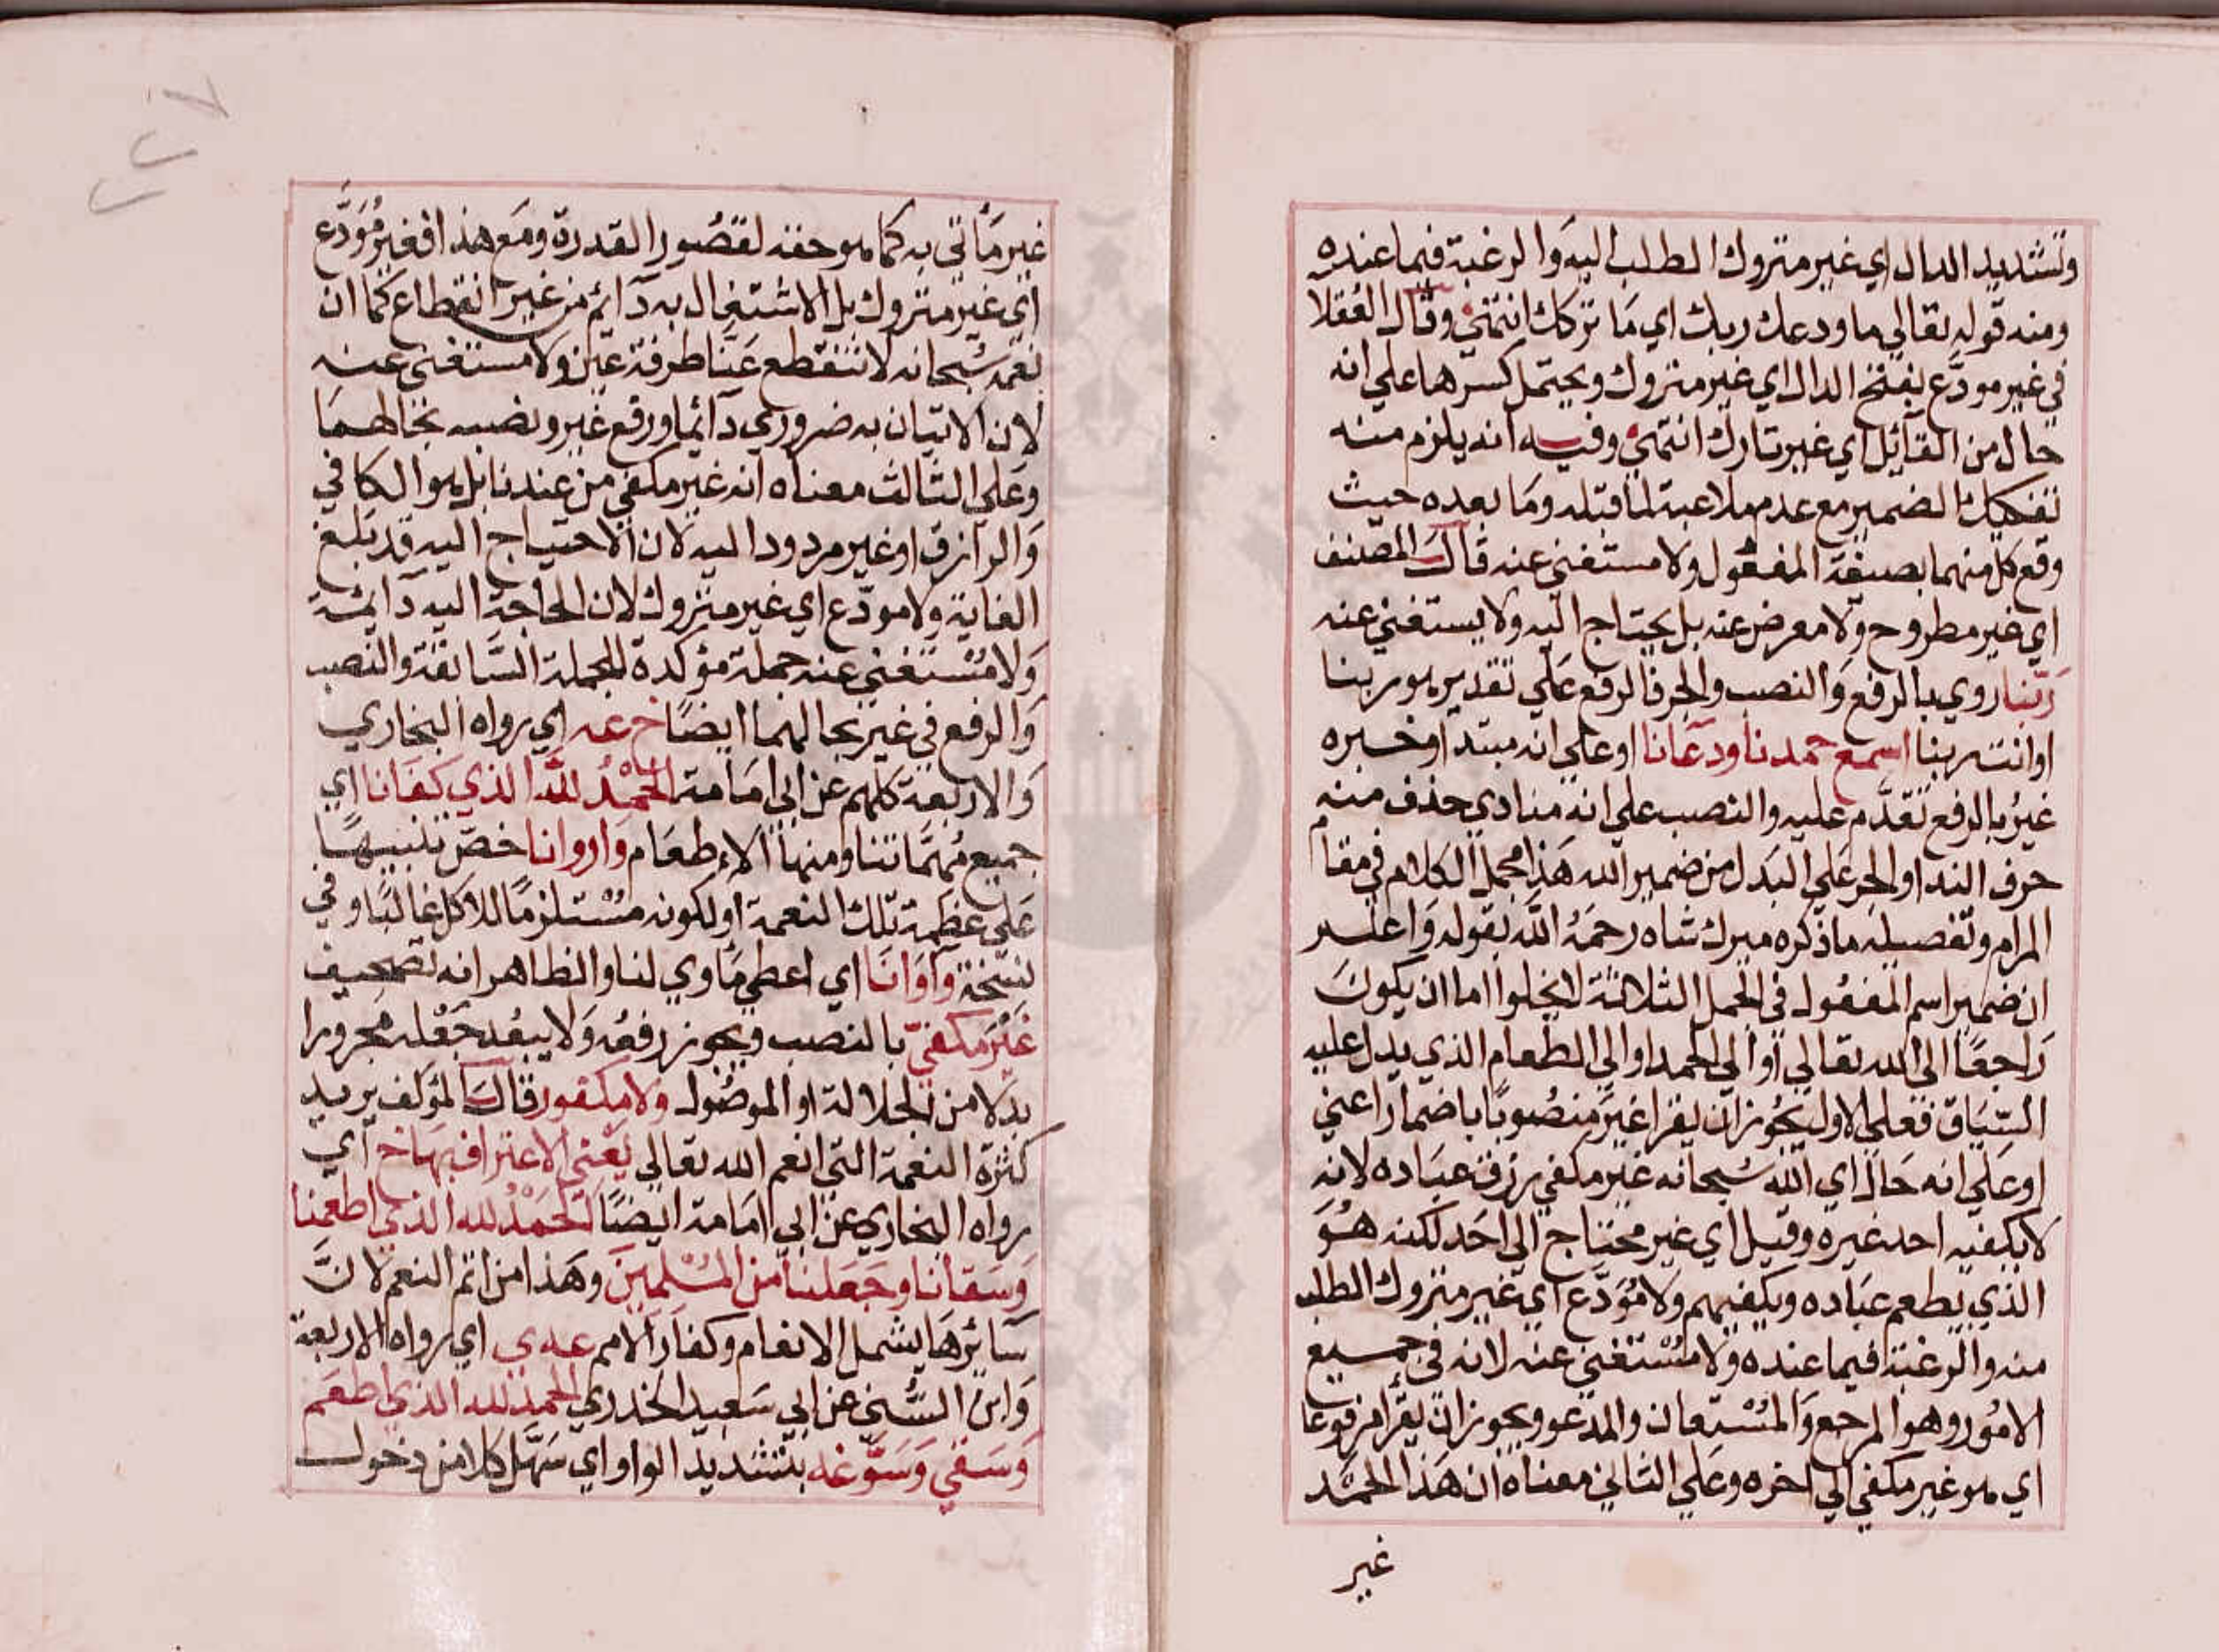 وتشديد الدال اي غير متروك الطلب اليه والرغبة فيما عنده
ومنه قوله تعالي ما ودعك ربك اي ما تركك انتهي وقال
في غير مودع بفتح الدال اي غير متروك ويحتمل كسرها علي انه
حال من القائل اي غير تارك انتهي وفيه انه يلزم منه
تفكيك الضمير مع عدم ملاعبة لما قبله وما بعده حيث
وقع كل منهما بصيغة المفعول ولا مستغني عنه قال المصنف
اي غير مطروح ولا معرض عنه بل يحتاج اليه ولا يستغني عنه
ربنا روي بالرفع والنصب والجر فالرفع علي تقدير هو ربنا
او انت ربنا اسمع حمدنا ودعانا او علي انه مبتدا وخبره
غير بالرفع تقدم عليه والنصب علي انه منادي حذف منه
حرف الندا والجر علي البدل من ضمير الله هذا مجمل الكلام في مقام
المرام وتفصيله ما ذكره ميرك شاه رحمه الله بقوله واعلم
ان ضمير اسم المفعول في الجمل الثلاثة لا يخلوا اما ان يكون
راجعا الي الله تعالي او الي الحمد او الي الطعام الذي يدل عليه
السياق فعلي الاول يجوز ان يقرا غير منصوبا باضمار اعني
او علي انه حال اي الله سبحانه غير مكفي رزق عباده لانه
لا يكفيه احد غيره وقيل اي غير محتاج الي احد لكنه هو
الذي يطعم عباده ويكفيهم ولا مودع اي غير متروك الطلب
منه والرغبة فيما عنده ولا مستغني عنه لانه في جميع
الامور وهو المرجع والمستعان والمدعو ويجوز ان يقرا مرفوعا
اي هو غير مكفي الي اخره وعلي الثاني معناه ان هذا الحمد
غير
غير مأتي به كما هو حقه لقصور القدرة ومع هذا فغير مودع
اي غير متروك بل الاشتغال به دآئم من غير انقطاع كما ان
نعمه سبحانه لا تنقطع عنا طرفة عين ولا مستغني عنه
لان الاتيان به ضروري دآئما ورفع غير ونصبه بحالهما
وعلي الثالث معناه انه غير مكفي من عندنا بل هو الكافي
والرازق او غير مردود اليه لان الاحتياج اليه قد بلغ
الغاية ولا مودع اي غير متروك لان الحاجة اليه دآئمة
ولا مستغني عنه جملة مؤكدة للجملة السابقة والنصب
والرفع في غير بحالهما ايضا خ عه اي رواه البخاري
والاربعة كلهم عن ابي امامة الحمد لله الذي كفانا اي
جميع مهماتنا ومنها الاطعام واروانا خص تنبيها
علي عظمة تلك النعمة او لكونه مستلزما للاكل غالبا وفي
نسخة وآوانا اي اعطي مأوي لنا والظاهر انه تصحيف
غير مكفي بالنصب ويجوز رفعه ولا يبعد جعله مجرورا
بدلا من الجلالة او الموصول ولا مكفور قال المؤلف يريد
كثرة النعمة التي انعم الله تعالي يعني الاعتراف بها خ اي
رواه البخاري عن ابي امامة ايضا الحمد لله الذي اطعمنا
وسقانا وجعلنا من المسلمين وهذا من اتم النعم لان
سائرها يشمل الانعام وكفار الامم عه ي اي رواه الاربعة
وابن السني عن ابي سعيد الخدري الحمد لله الذي اطعم
وسقي وسوغه بتشديد الواو اي سهل كلا من دخول